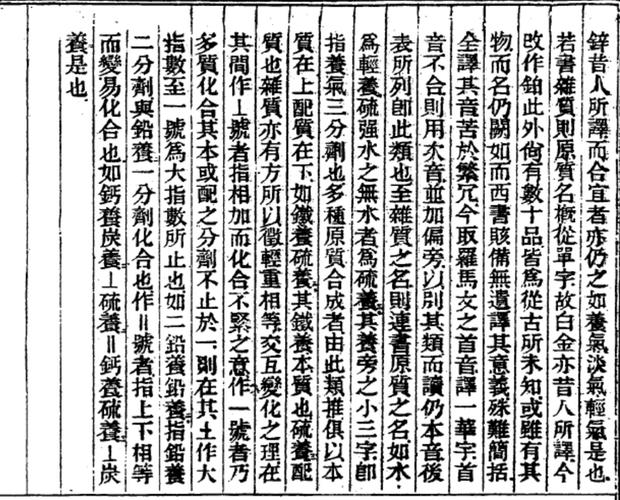 鋅昔人所譯而合宜者亦仍之如養氣淡氣輕氣是也
若書雜質則原質名概從單字故白金亦昔人所譯今
改作鉑此外尙有數十品皆爲從古所未知或雖有其
物而名仍闕如而西書賅備無遺譯其意義殊難簡括
全譯其音苦於繁冗今取羅馬文之首音譯一華字首
音不合則用次音並加偏旁以別其類而讀仍本音後
表所列卽此類也至雜質之名則連書原質之名如水
爲輕養硫强水之無水者爲硫養三其養旁之小三字卽
指養氣三分劑也多種原質合成者由此類推俱以本
質在上配質在下如鐵養硫養三其鐵養本質也硫養三配
質也雜質亦有方所以徵輕重相等交互變化之理在
其間作⊥號者指相加而化合不緊之意作一號者乃
多質化合其本或配之分劑不止於一則在其上作大
指數至一號爲大指數所止也如二鉛養鉛養二指鉛養
二分劑與鉛養二一分劑化合也作〓號者指上下相等
而變易化合也如鈣養炭養二⊥硫養三〓鈣養硫養三⊥炭
養二是也